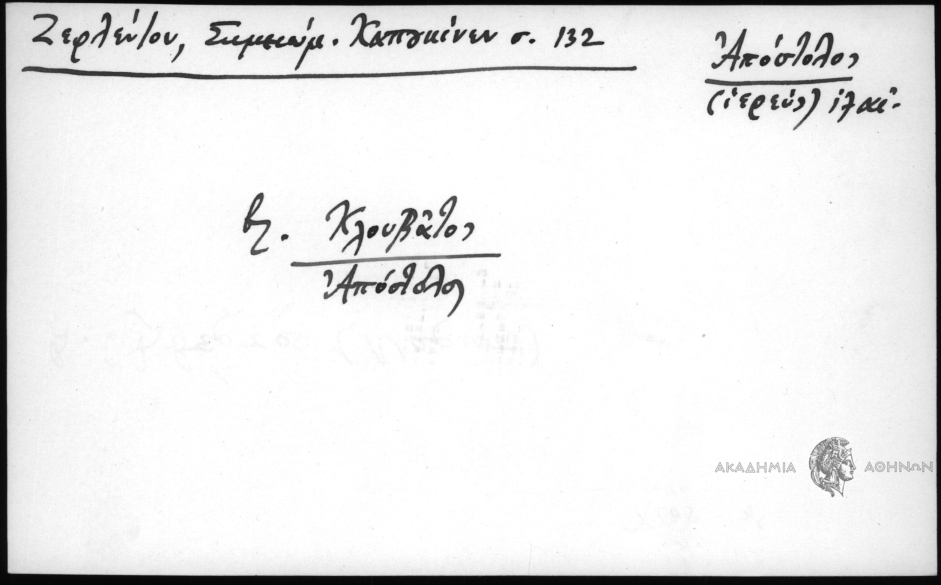 Ζερλέντου, Σημειώμ. Καπουκίνων σ. 132
Ἀπόστολος
(ἱερεύς)
βλ. Κλουβᾶτος
Ἀπόστολος
ΑΚΑΔΗΜΙΑ ΑΘΗΝΩΝ